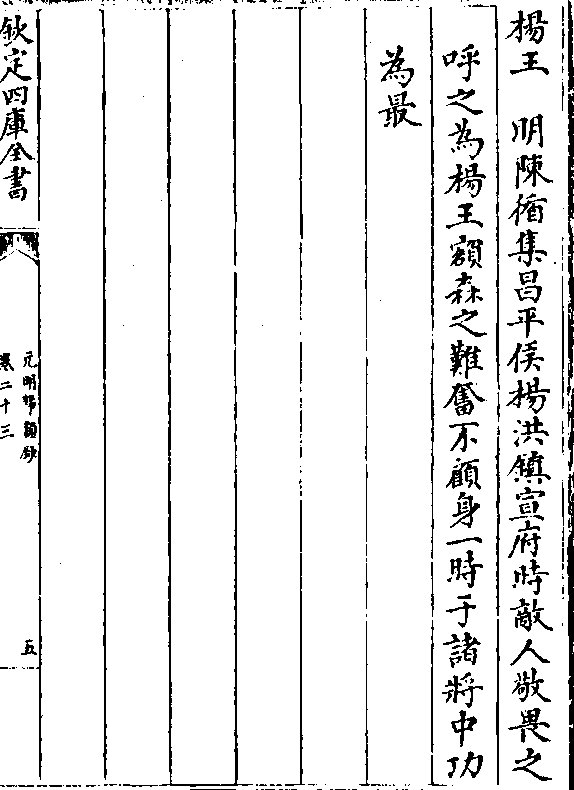 楊王　明陳循集昌平侯楊洪鎮宣府時敵人敬畏之
呼之為楊王額森之難奮不顧身一時于諸將中功
為最
欽定四庫全書
元明事類鈔
卷二十三
五